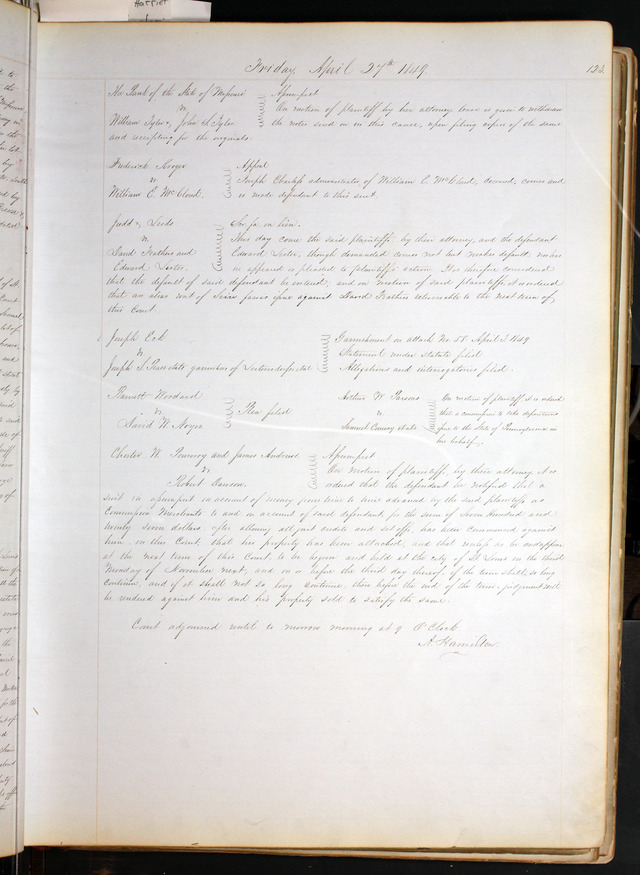 Harriet
Friday, April 27th 1849.
123.
The Bank of the State of Missouri
vs
William Tyler & John S Tyler
Assumpsit
On motion of plaintiff by her attorney leave is given to withdraw
the notes sued on in this cause, upon filing copies of the same
and receipting for the originals.
Frederick Kroger
vs
William E. McCloud.
Appeal
Joseph administrator of William E. McCloud, deceased, comes and
is made defendant to this suit.
Judd & Leeds
vs
David Feathers and
Edward Lester.
Sci fa on lien.
This day come the said plaintiffs, by their attorney, and the defendant
Edward Lester, though demanded comes not but makes default, nor
is appeared is pleaded to plaintiffs action. It is therefore considered
that the default of said defendant be entered, and on motion of said plaintiffs, it is ordered
that an alias writ of Scire facias issue against David Feathers returnable to the next term of
this Court.
Joseph
vs
Joseph S. Pease state garnishee of
Garnishment on attach No. 58 April T. 1849
Statement under statute filed
Allegations and interrogatories filed.
Woodard
vs
David N. Noyes
Plea filed
Arthur W Parsons
vs
Samuel Conway state
On motion of plaintiff it is ordered
that a commission to take depositions
issue to the State of Pennsylvania on
his behalf.
Chester W. Pomeroy and James Andrews
vs
Robert Dawson.
Assumpsit
On motion of plaintiffs, by their attorney it is
ordered that the defendant be notified that a
suit in assumpsit on account of money from time to time advanced by the said plaintiffs as
Commission Merchants to and on account of said defendant, for the sum of Seven Hundred and
twenty seven dollars, after allowing all just credits and set offs, has been commenced against
him, in this Court, that his property has been attached, and that unless he be and appear
at the next term of this Court to be begun and held at the city of St Louis on the third
Monday of November next, and on or before the third day thereof if the term shall so long
continue, and if it shall not so long continue, then before the end of the term, judgment will
be rendered against him and his property sold to satisfy the same.
Court adjourned until to morrow morning at 9 O'Clock
A Hamilton.